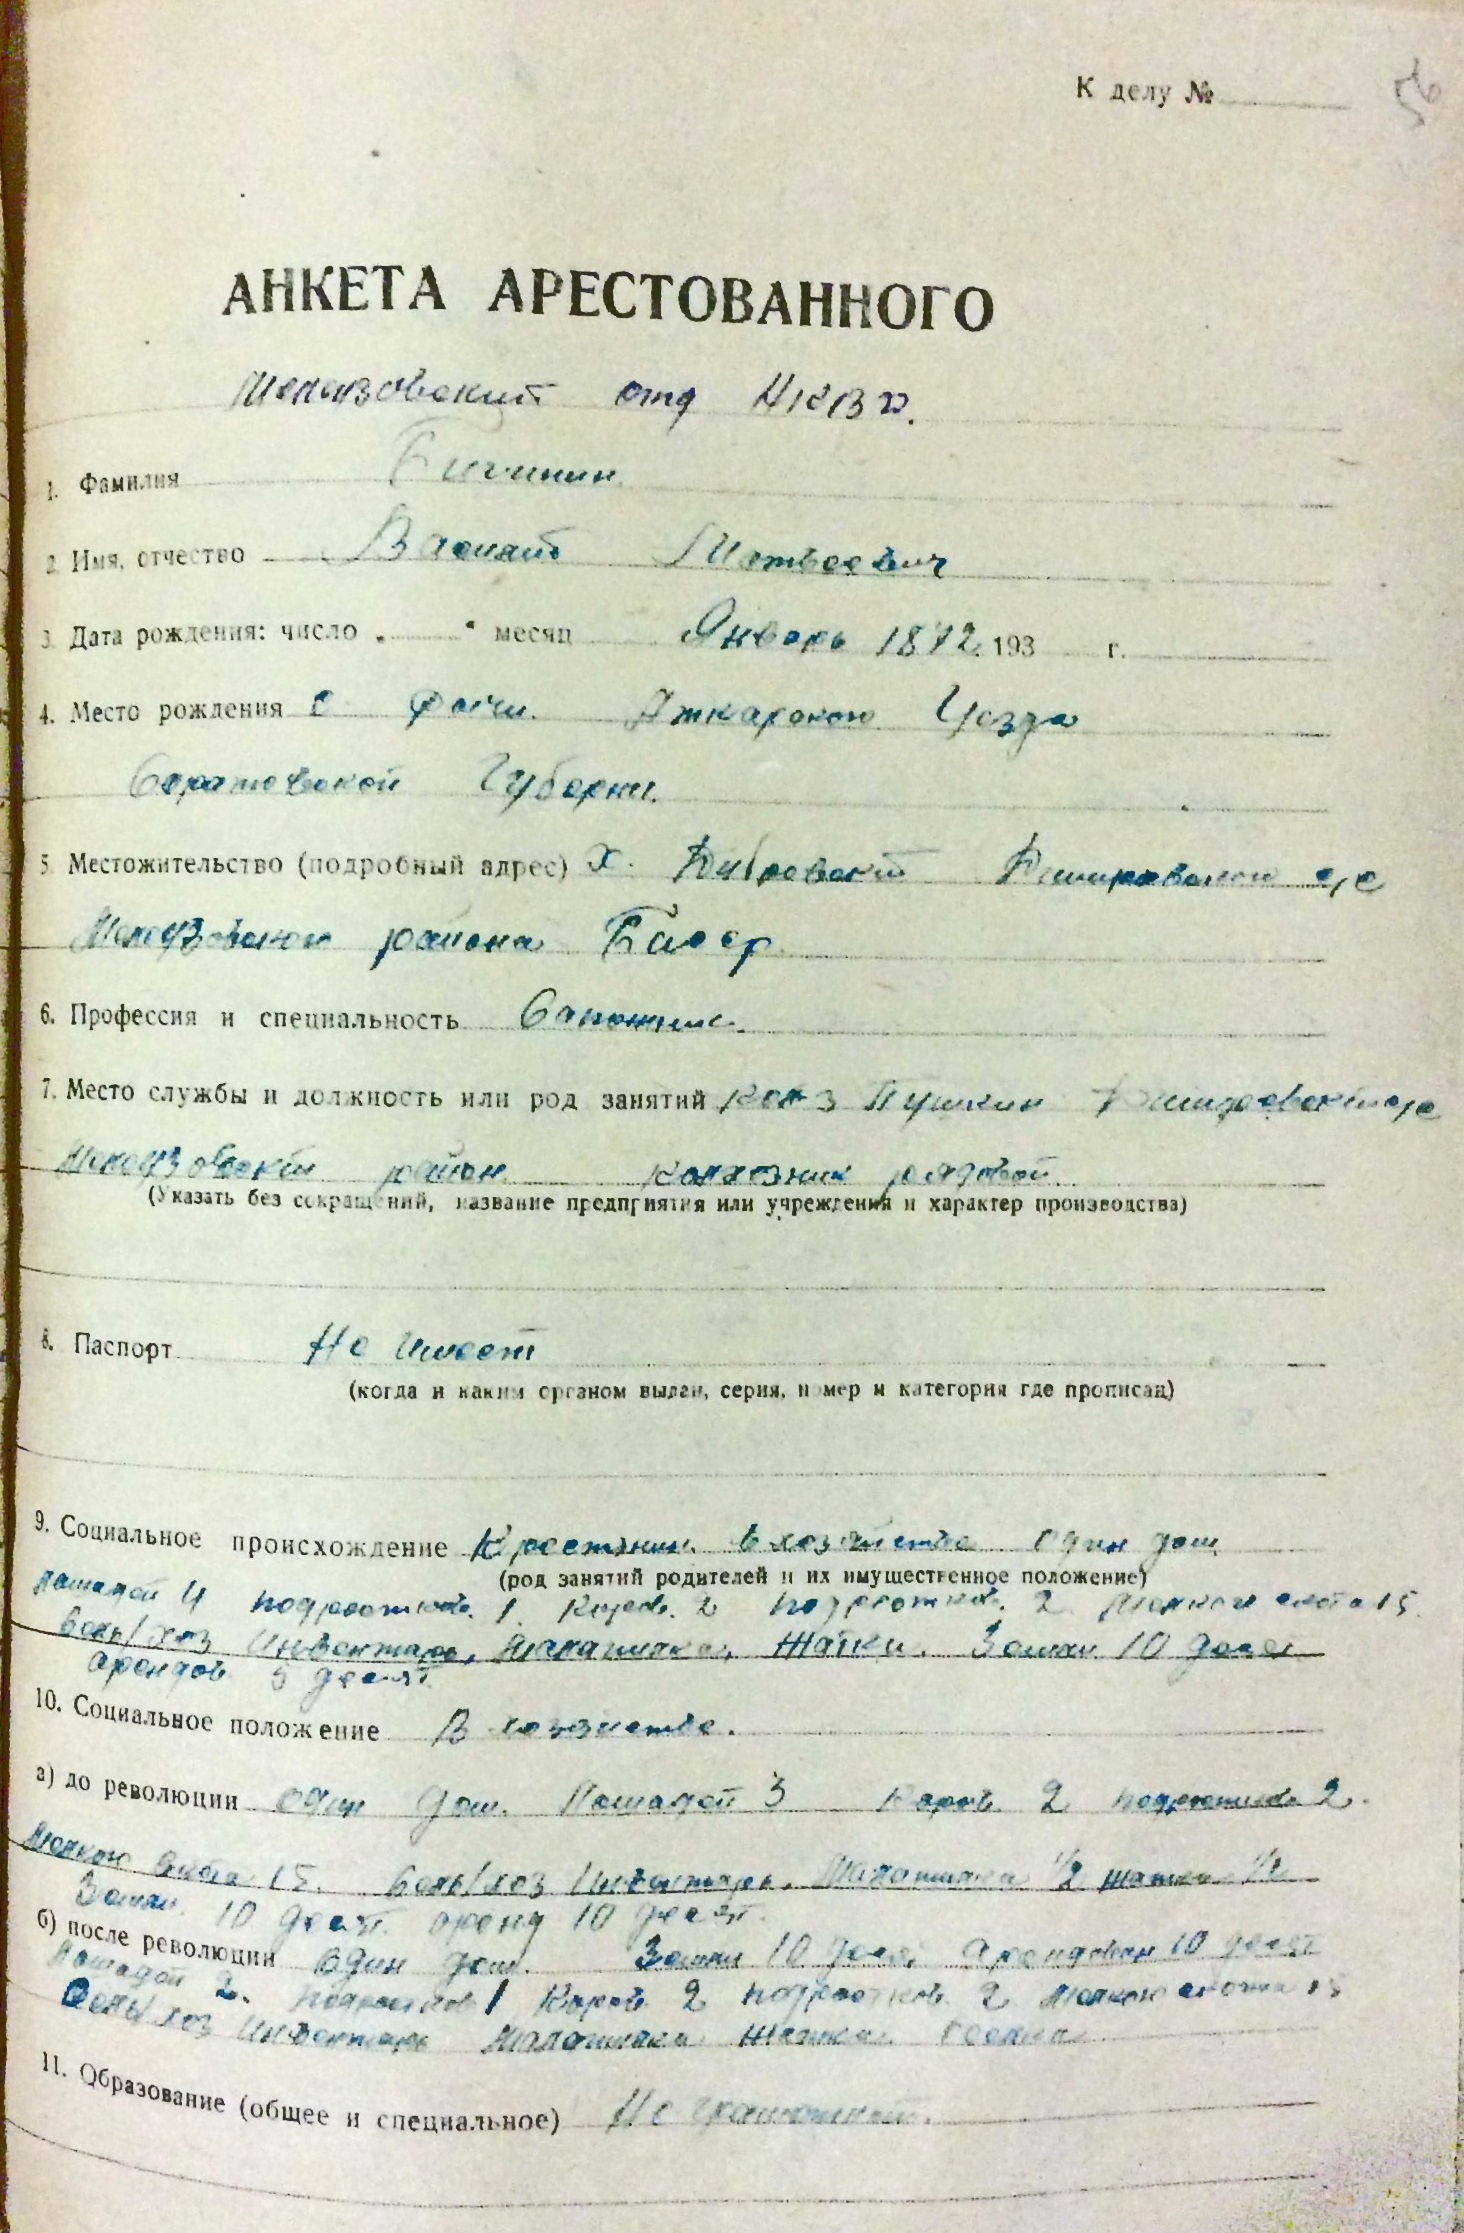 К делу №
56
АНКЕТА АРЕСТОВАННОГО
Мелеузовский отд НКВД.
1. Фамилия Бичинин
2. Имя, отчество Василий Матвеевич
3. Дата рождения: число „ “ месяц Январь 1872 193 г.
4. Место рождения с Аткарского Уезда
Саратовской Губерни.
5. Местожительство (подробный адрес) х. с/с
Мелеузовского района Басср
6. Профессия и специальность Сапожник.
7. Место службы и должность или род занятий Колхоз Пушкин с/с
Мелеузовский район колхозник рядовой
(Указать без сокращений, название предприятия или учреждения и характер производства)
8. Паспорт Не имеет
(когда и каким органом выдан, серия, номер и категория где прописан)
9. Социальное происхождение Крестянин. в хозяйстве один дом
(род занятий родителей и их имущественное положение)
Лошадей 4 подростков. 1. Коров. 2 подростков. 2 мелкого скота 15.
Сель/хоз Инвентарь, Малатилка, Жатки. Земли 10 десят
арендов 5 десят.
10. Социальное положение В хозяистве.
а) до революции один дом. Лошадей 3 Коров 2 подростков 2.
Мелкого скота 15. Сель/хоз Инвентарь. Малатилка 1/2 жатка 1/2
Земли 10 десят. аренд 10 десят.
б) после революции один дом. Земли 10 десят арендовал 10 десят
Лошадей 2. подростков 1 Коров 2 подростков 2 мелкого скота 15
Сель/хоз Инвентарь Малатилка Жатка
11. Образование (общее и специальное) Не грамотный.